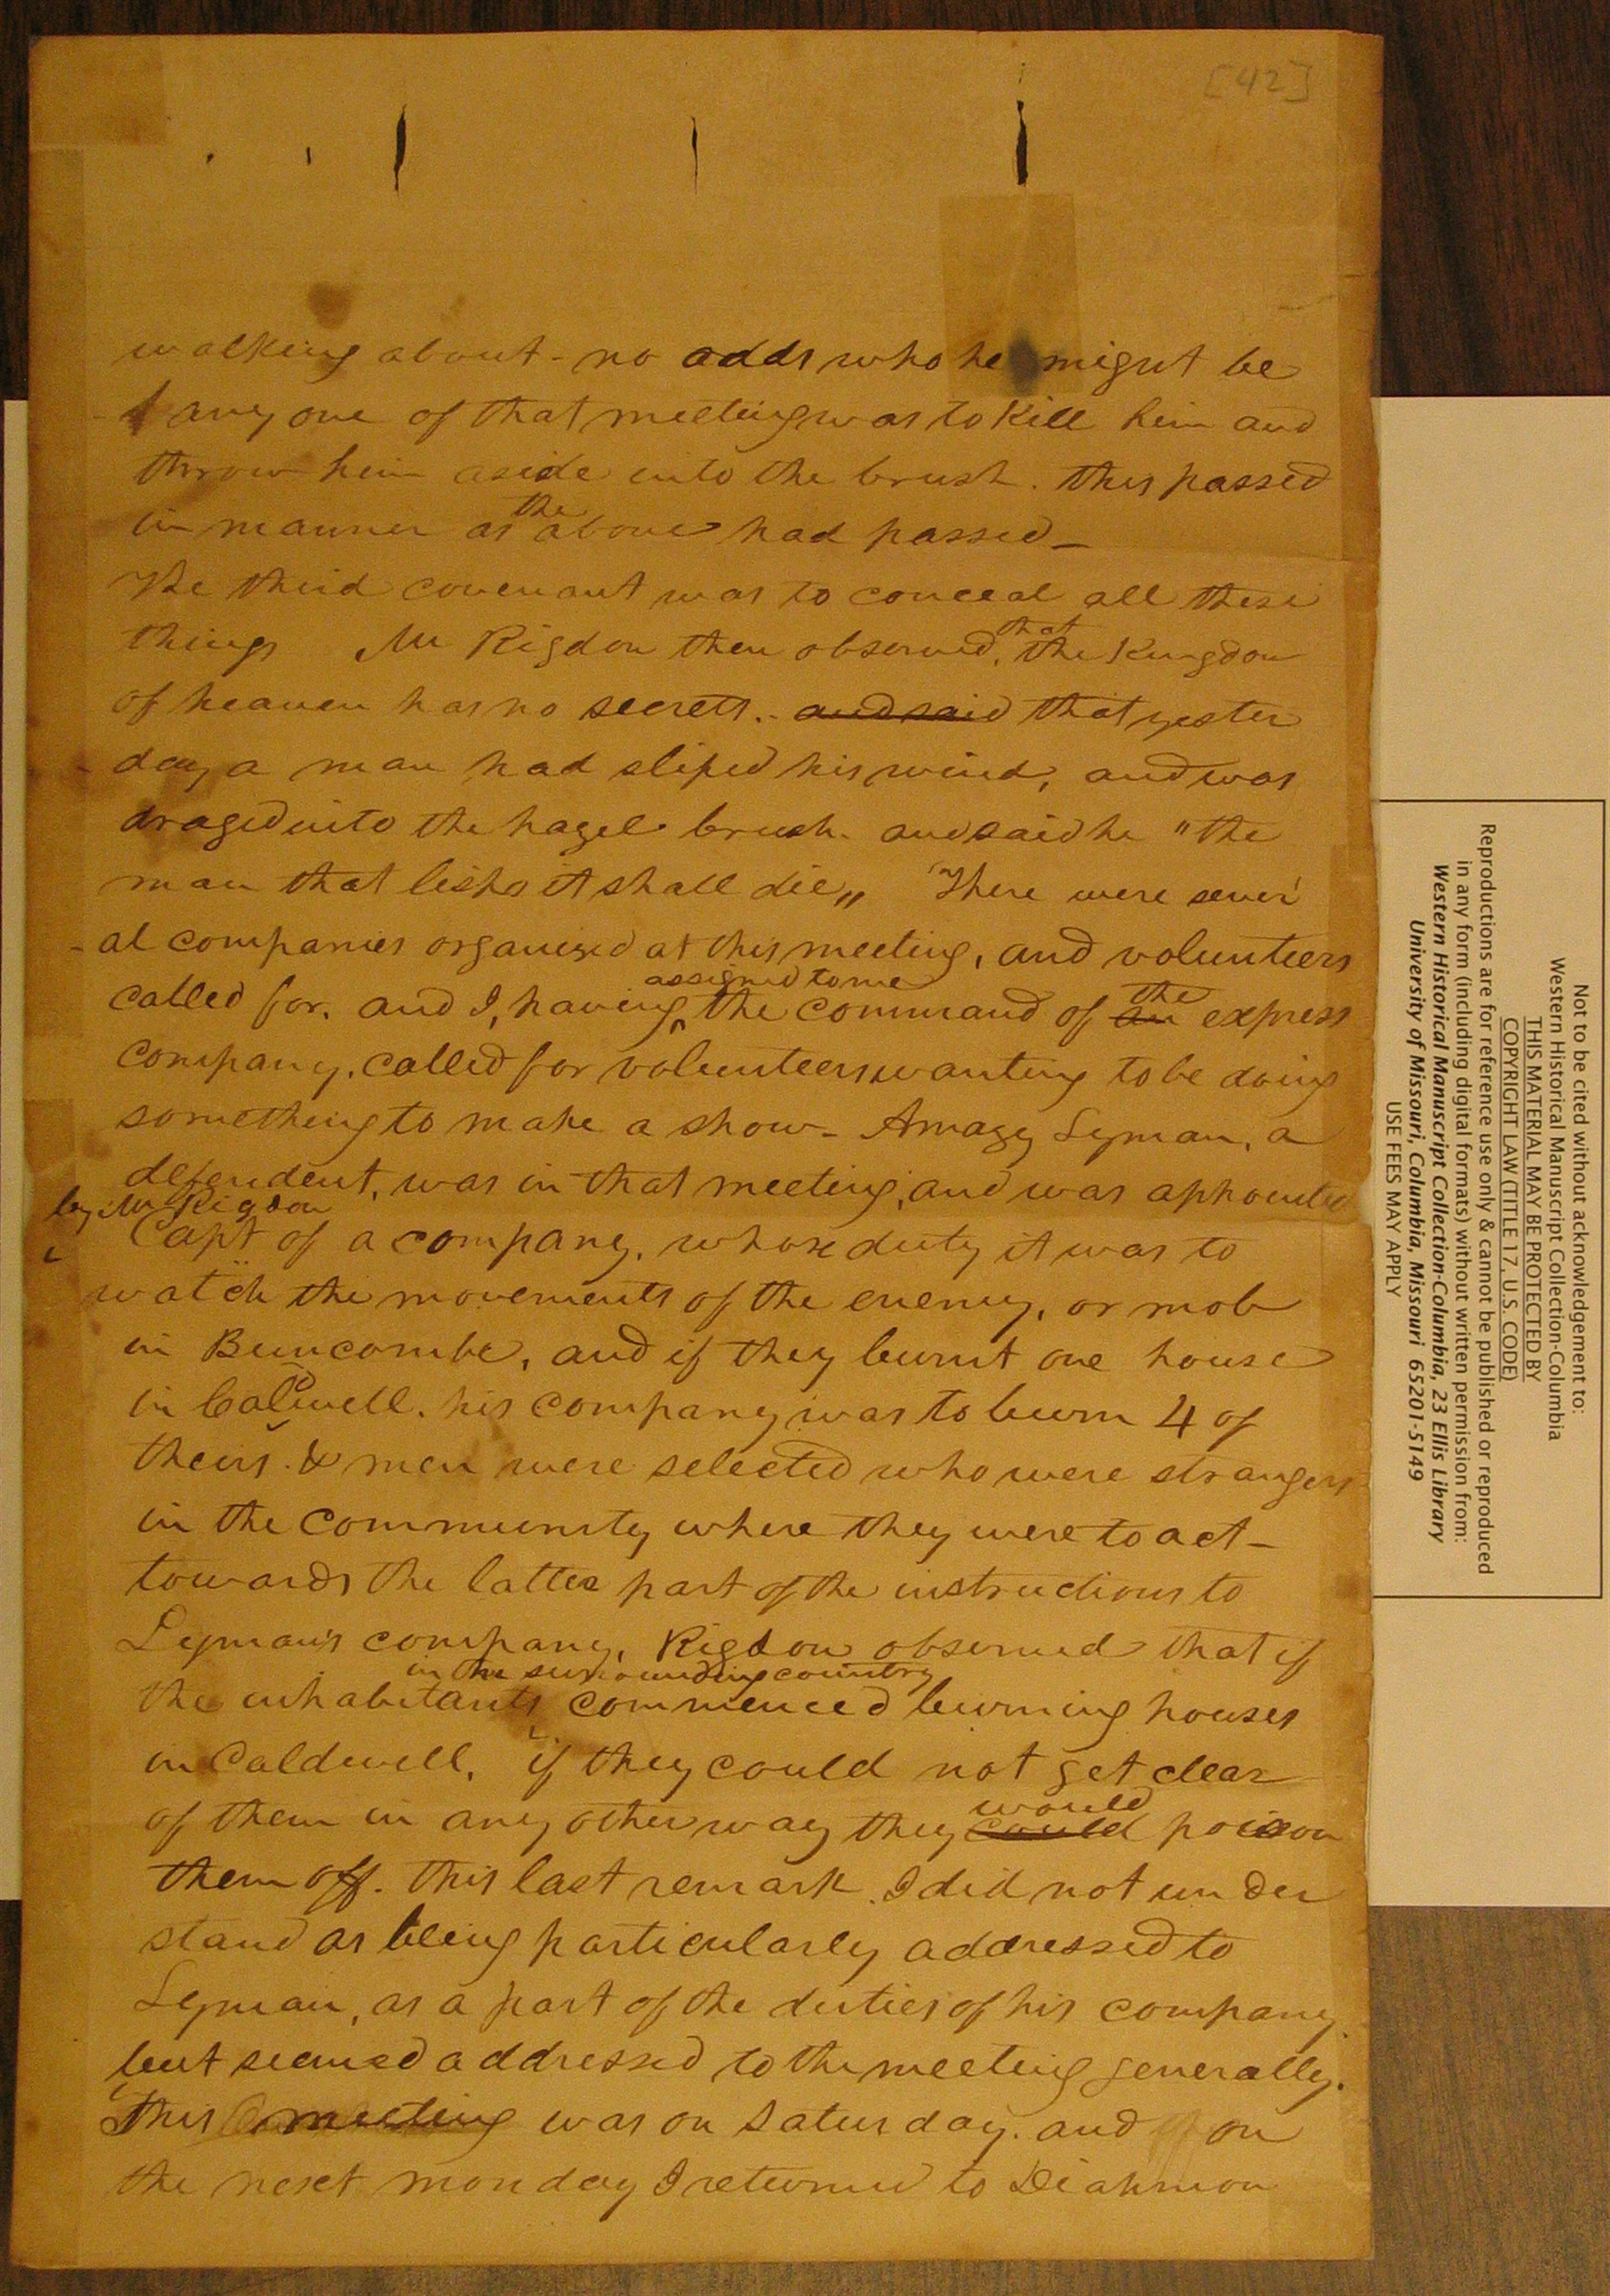 [42]
walking about - no odds who he might be
any one of that meeting was to kill him and
throw him aside into the brush. this passed
in manner as the above had passed_
The third covenant was to conceal all these
things Mr Rigdon then observed, that the Kingdom
of heaven has no secrets. - and said that yester
day a man had sliped his wind, and was
draged into the hazel brush. and said he "the
man that lisps it shall die„ There were sever
al companies organised at this meeting, and volunteers
called for. and I, having assigned to me the command of an the express
company, called for volunteers wanting to be doing
something to make a show_ Amazy Lyman, a
defendent, was in that meeting, and was appointed
by Mr Rigdon
Capt of a company, whose duty it was to
watch the movements of the enemy, or mob
in Buncombe, and if they burnt one house
in Caldwell. his company was to burn 4 of
theirs. & men were selected who were strangers
in the community where they were to act_
towards the latter part of the instructions to
Lyman's company, Rigdon observed that if
the inhabitants in the surrounding country commenced burning houses
in Caldwell, if they could not get clear
of them in any other way they could would poison
them off. this last remark I did not under
stand as being particularly addressed to
Lyman, as a part of the duties of his company
but seemed addressed to the meeting generally.
This meeting was on Saturday. and on
the next monday I returned to Diahmon
Not to be cited without acknowledgement to:
Western Historical Manuscript Collection-Columbia
THIS MATERIAL MAY BE PROTECTED BY
COPYRIGHT LAW (TITLE 17 U.S. CODE)
Reproductions are for reference use only & cannot be published or reproduced
in any form (including digital formats) without written permission from:
Western Historical Manuscript Collection-Columbia, 23 Ellis Library
University of Missouri, Columbia, Missouri 65201-5149
USE FEES MAY APPLY